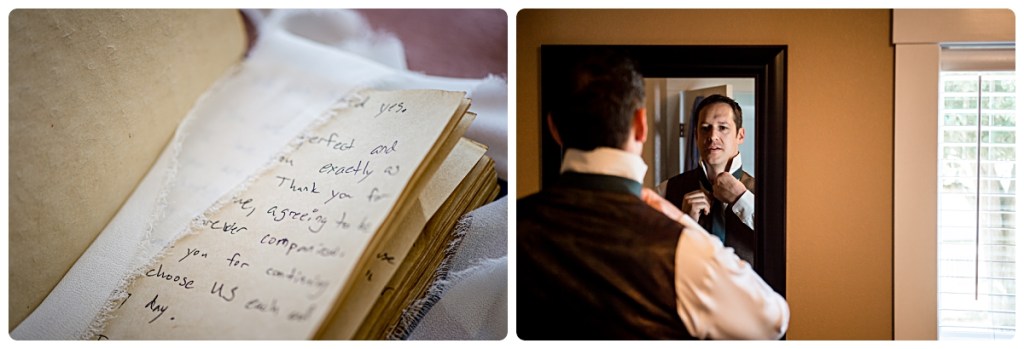 yes.
perfect and
exactly as
Thank you for
agreeing to be
companion.
you for continuing
choose us each and
day.